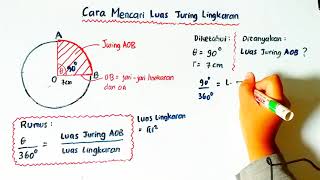 Cara Mencari Luas Juring Lingkaran
A
Juring AOB
θ 90°
O 7cm B
OB = jari-jari lingkaran
dan OA
Diketahui:
θ = 90°
r = 7cm
Ditanyakan:
Luas Juring AOB ?
90°/360° = L
Rumus:
θ/360° = Luas Juring AOB/Luas Lingkaran
Luas Lingkaran
= πr²